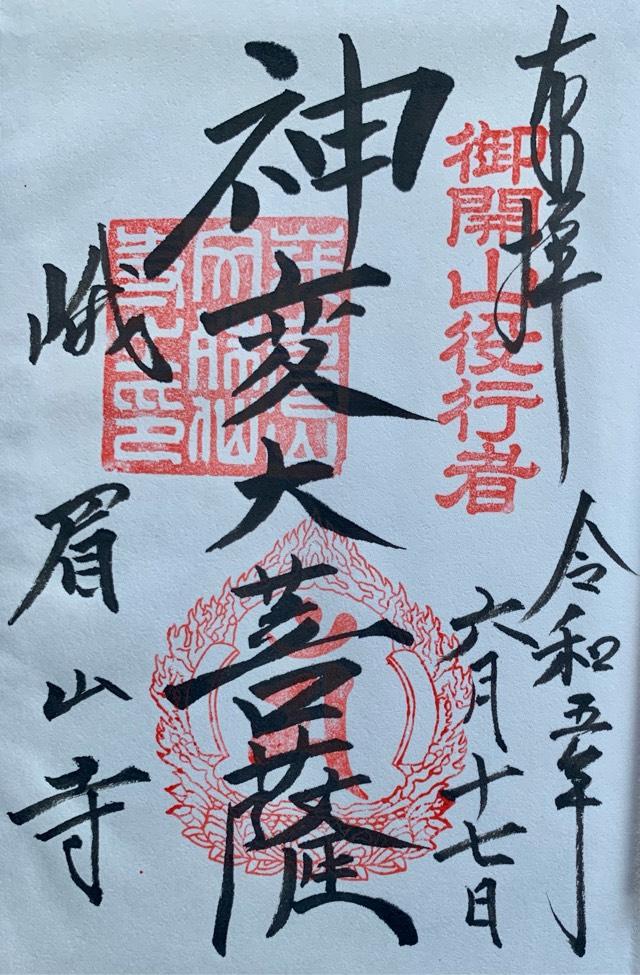 奉拝
御開山役行者
令和五年
六月十七日
神変大菩薩
峨眉山寺